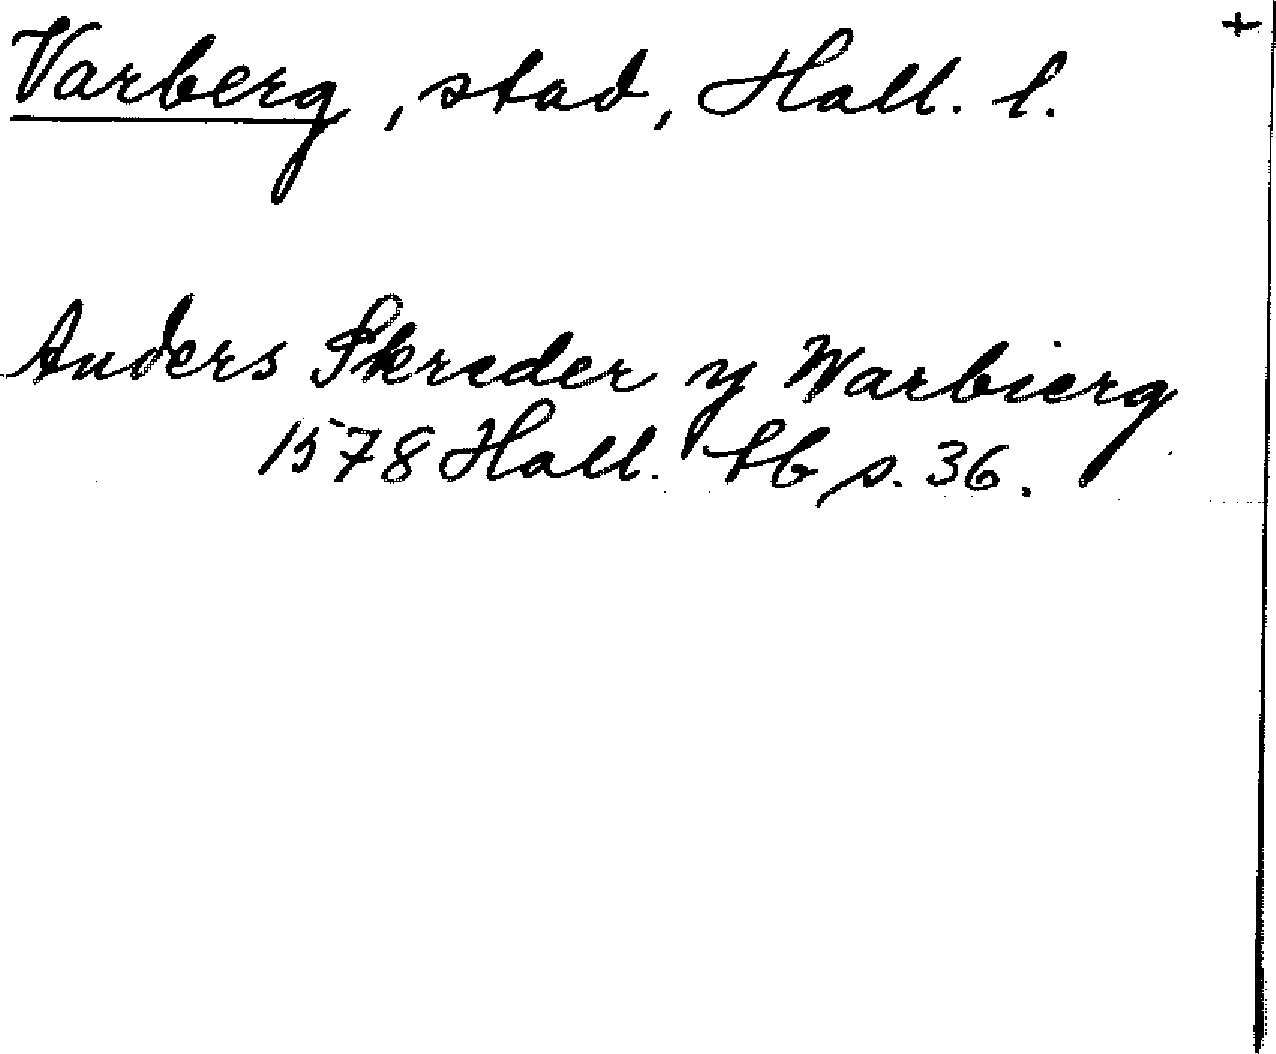 +
Varberg, stad, Hall. l.
Anders Skreder y Warbierg
1578 Hall. tb s. 36.